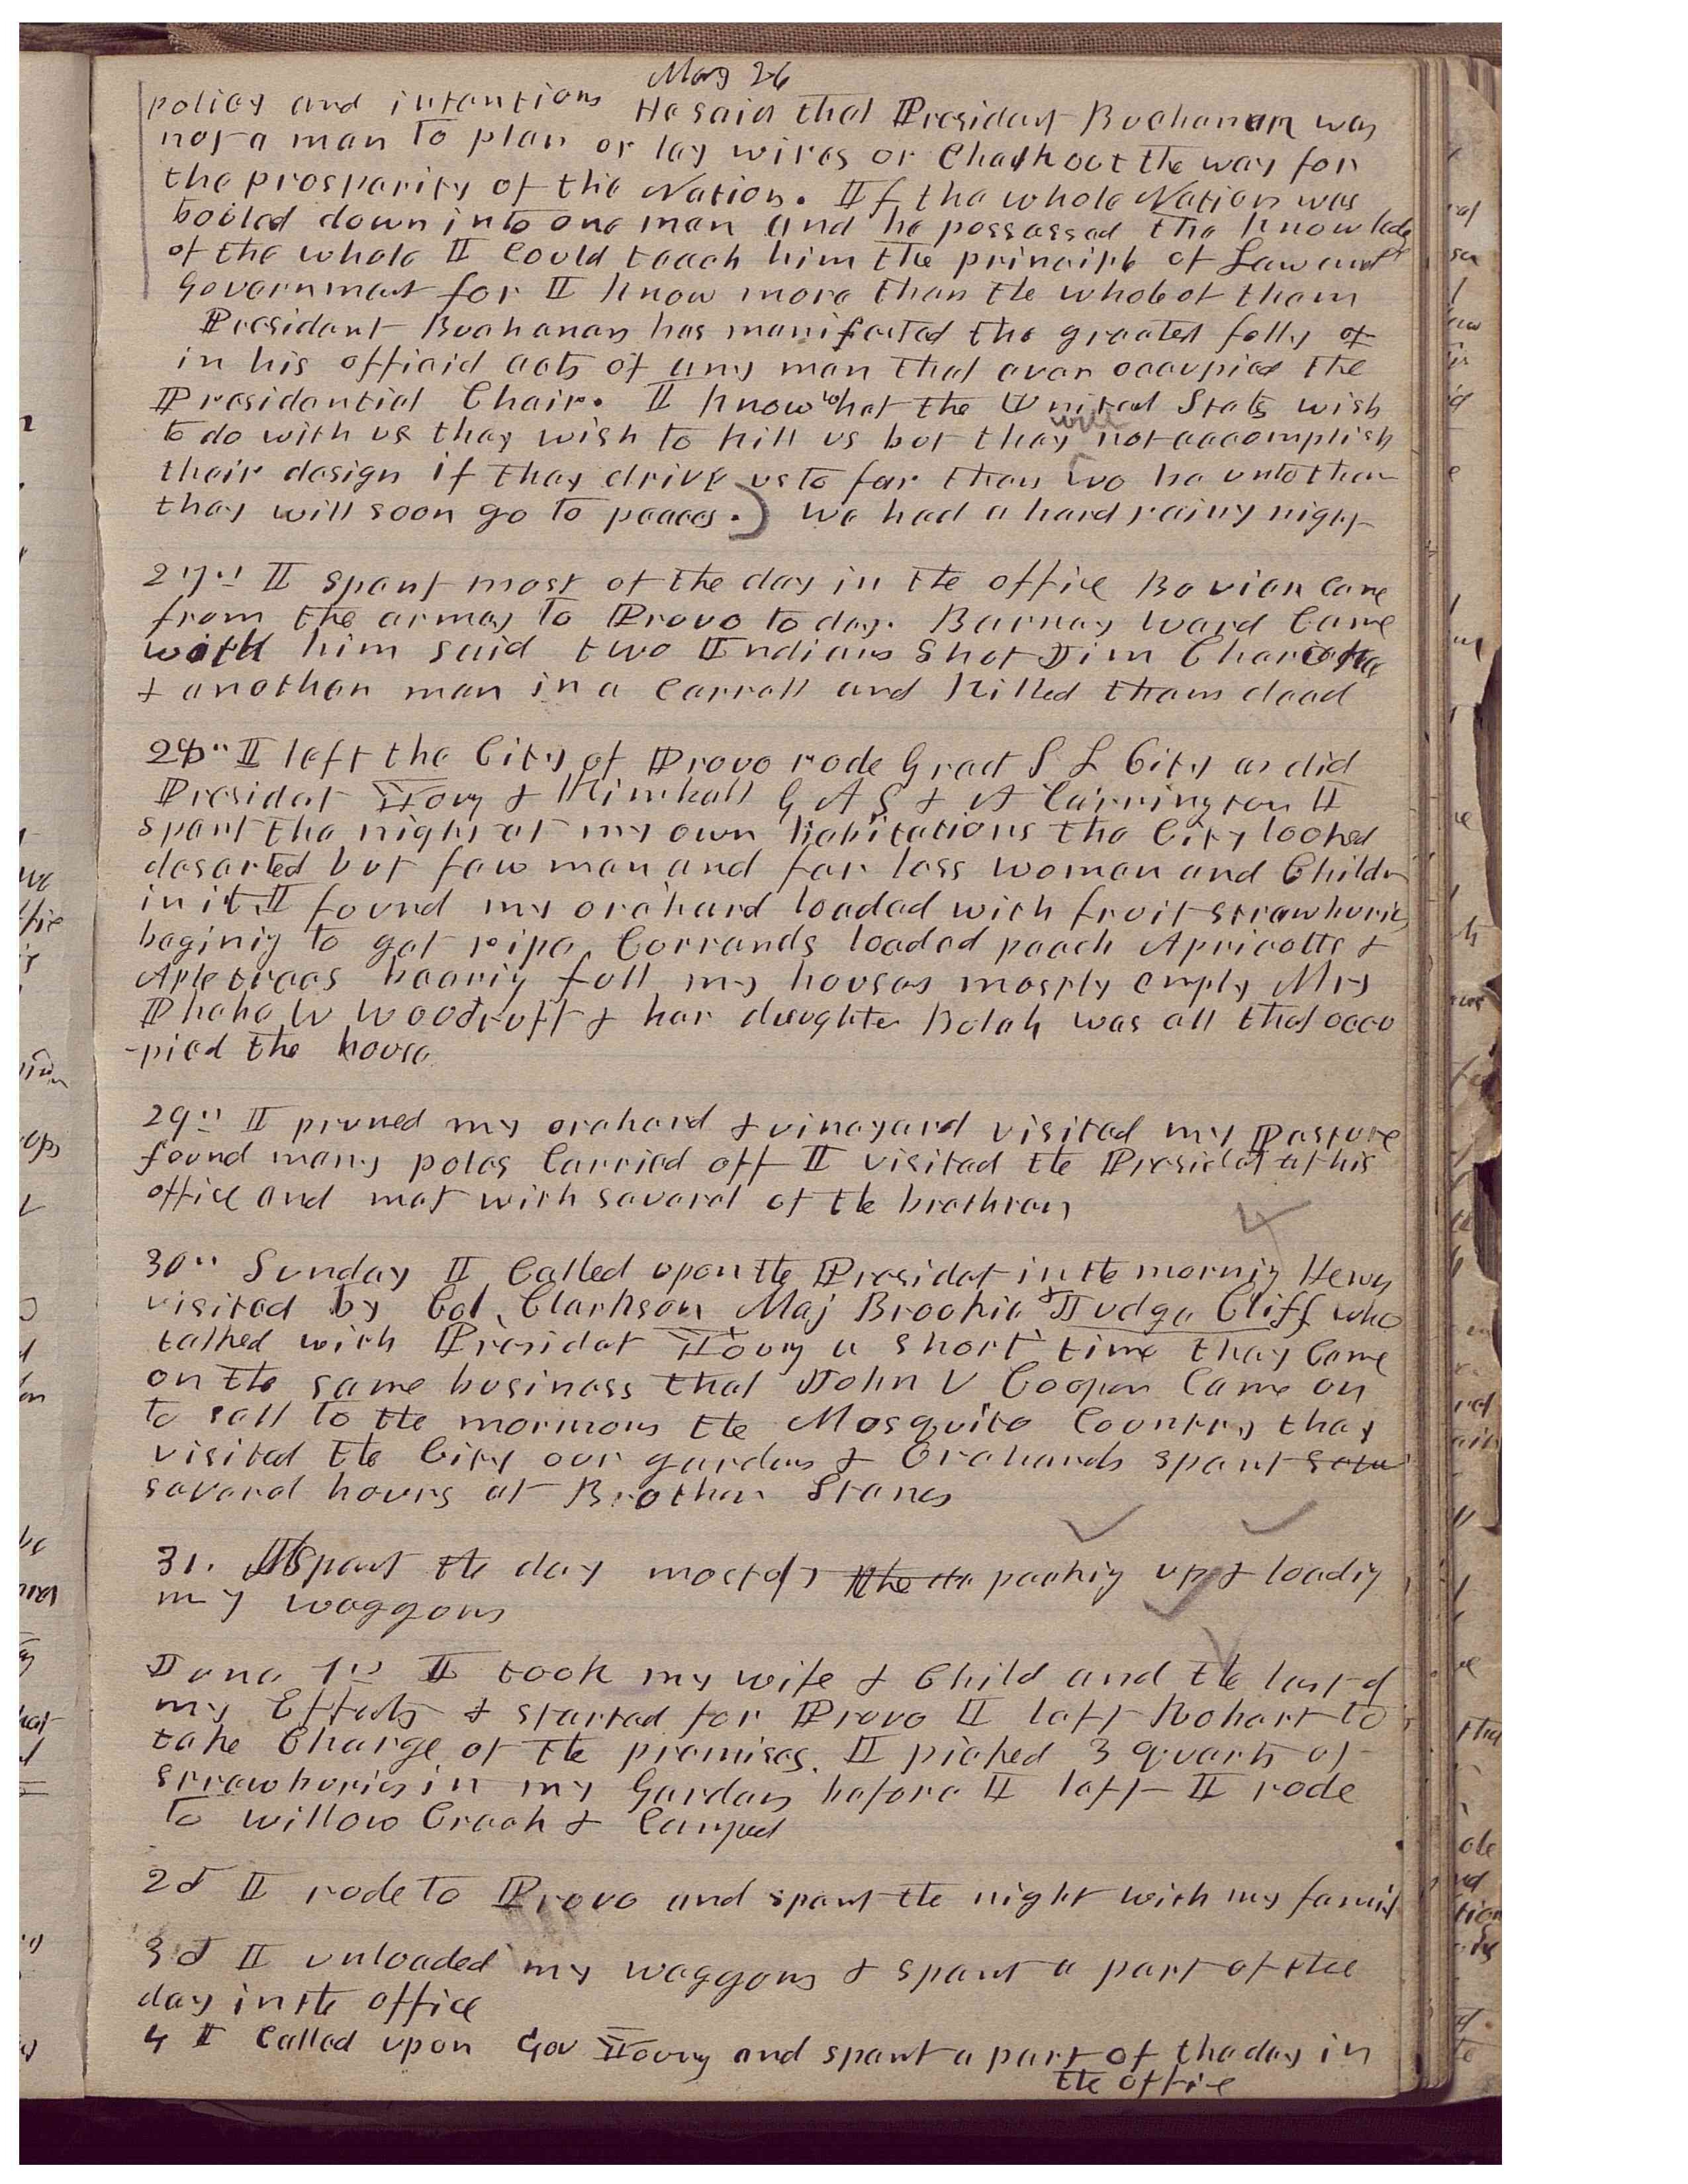 May 26
policy and intentions He said that President Buchanan was
not a man to plan or lay wires or Chalk out the way for
the prosperity of the Nation. If the whole Nation was
boiled down into one man and he possessed the knowledg
of the whole I Could teach him the principle of Law and
Government for I know more than the whole of them
President Buchanan has manifested the greatest folly of
in his official acts of any man that ever occupied the
Presidential Chair. I know what the United States wish
to do with us they wish to kill us but they will not accomplish
their design if they drive us to far then wo be unto them
they will soon go to peaces. We had a hard rainy night
27" I spent most of the day in the office Bovier Came
from the armey to Provo to day. Barney Ward Came
with him said two Indians Shot Jim
& another man in a Carrall and killed them dead
28" I left the City of Provo rode Great S L City as did
President Young & Kimball G A S & A Carrington I
spent the night at my own habitations the City looked
deserted but few men and far less women and Childr
in it. I found my orchard loaded with fruit strawburies
begining to get ripe, Corrands loaded peach Apricotts &
Aple trees bearing full my houses mostly empty Mrs
Phebe W Woodruff & her daughter Belah was all that occu
-pied the house
29" I pruned my orchard & vineyard visited my Pasture
found many poles Carried off I visited the Presidet at his
office and met with several of the brethren
4
30" Sunday I Called upon the Presidet in the morning He was
visited by Col. Clarkson Maj Brookie & Judge Cliff who
talked with Presidet Young a short time they Came
on the same business that John V Cooper Came on
to sell to the mormons the Mosquito Country they
visited the City our gardens & Orchards spent
several hours at Brother Stanes
31. I spent the day mostly the packing up & loading
my waggons
June 1" I took my wife & Child and the last of
my Effects & started for Provo I left Robert to
take Charge of the premises. I picked 3 quarts of
strawburies in my Garden before I left I rode
to Willow Creek & Camped
2d I rode to Provo and spent the night with my family
3d I unloaded my waggons & spent a part of the
day in the office
4 I Called upon Gov Young and spent a part of the day in
the office